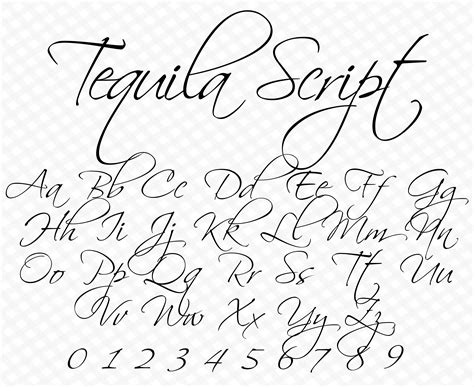 Tequila Script
Aa Bb Cc Dd Ee Ff Gg
Hh Ii Jj Kk Ll Mm Nn
Oo Pp Qq Rr Ss Tt Uu
Vv Ww Xx Yy Zz
0 1 2 3 4 5 6 7 8 9